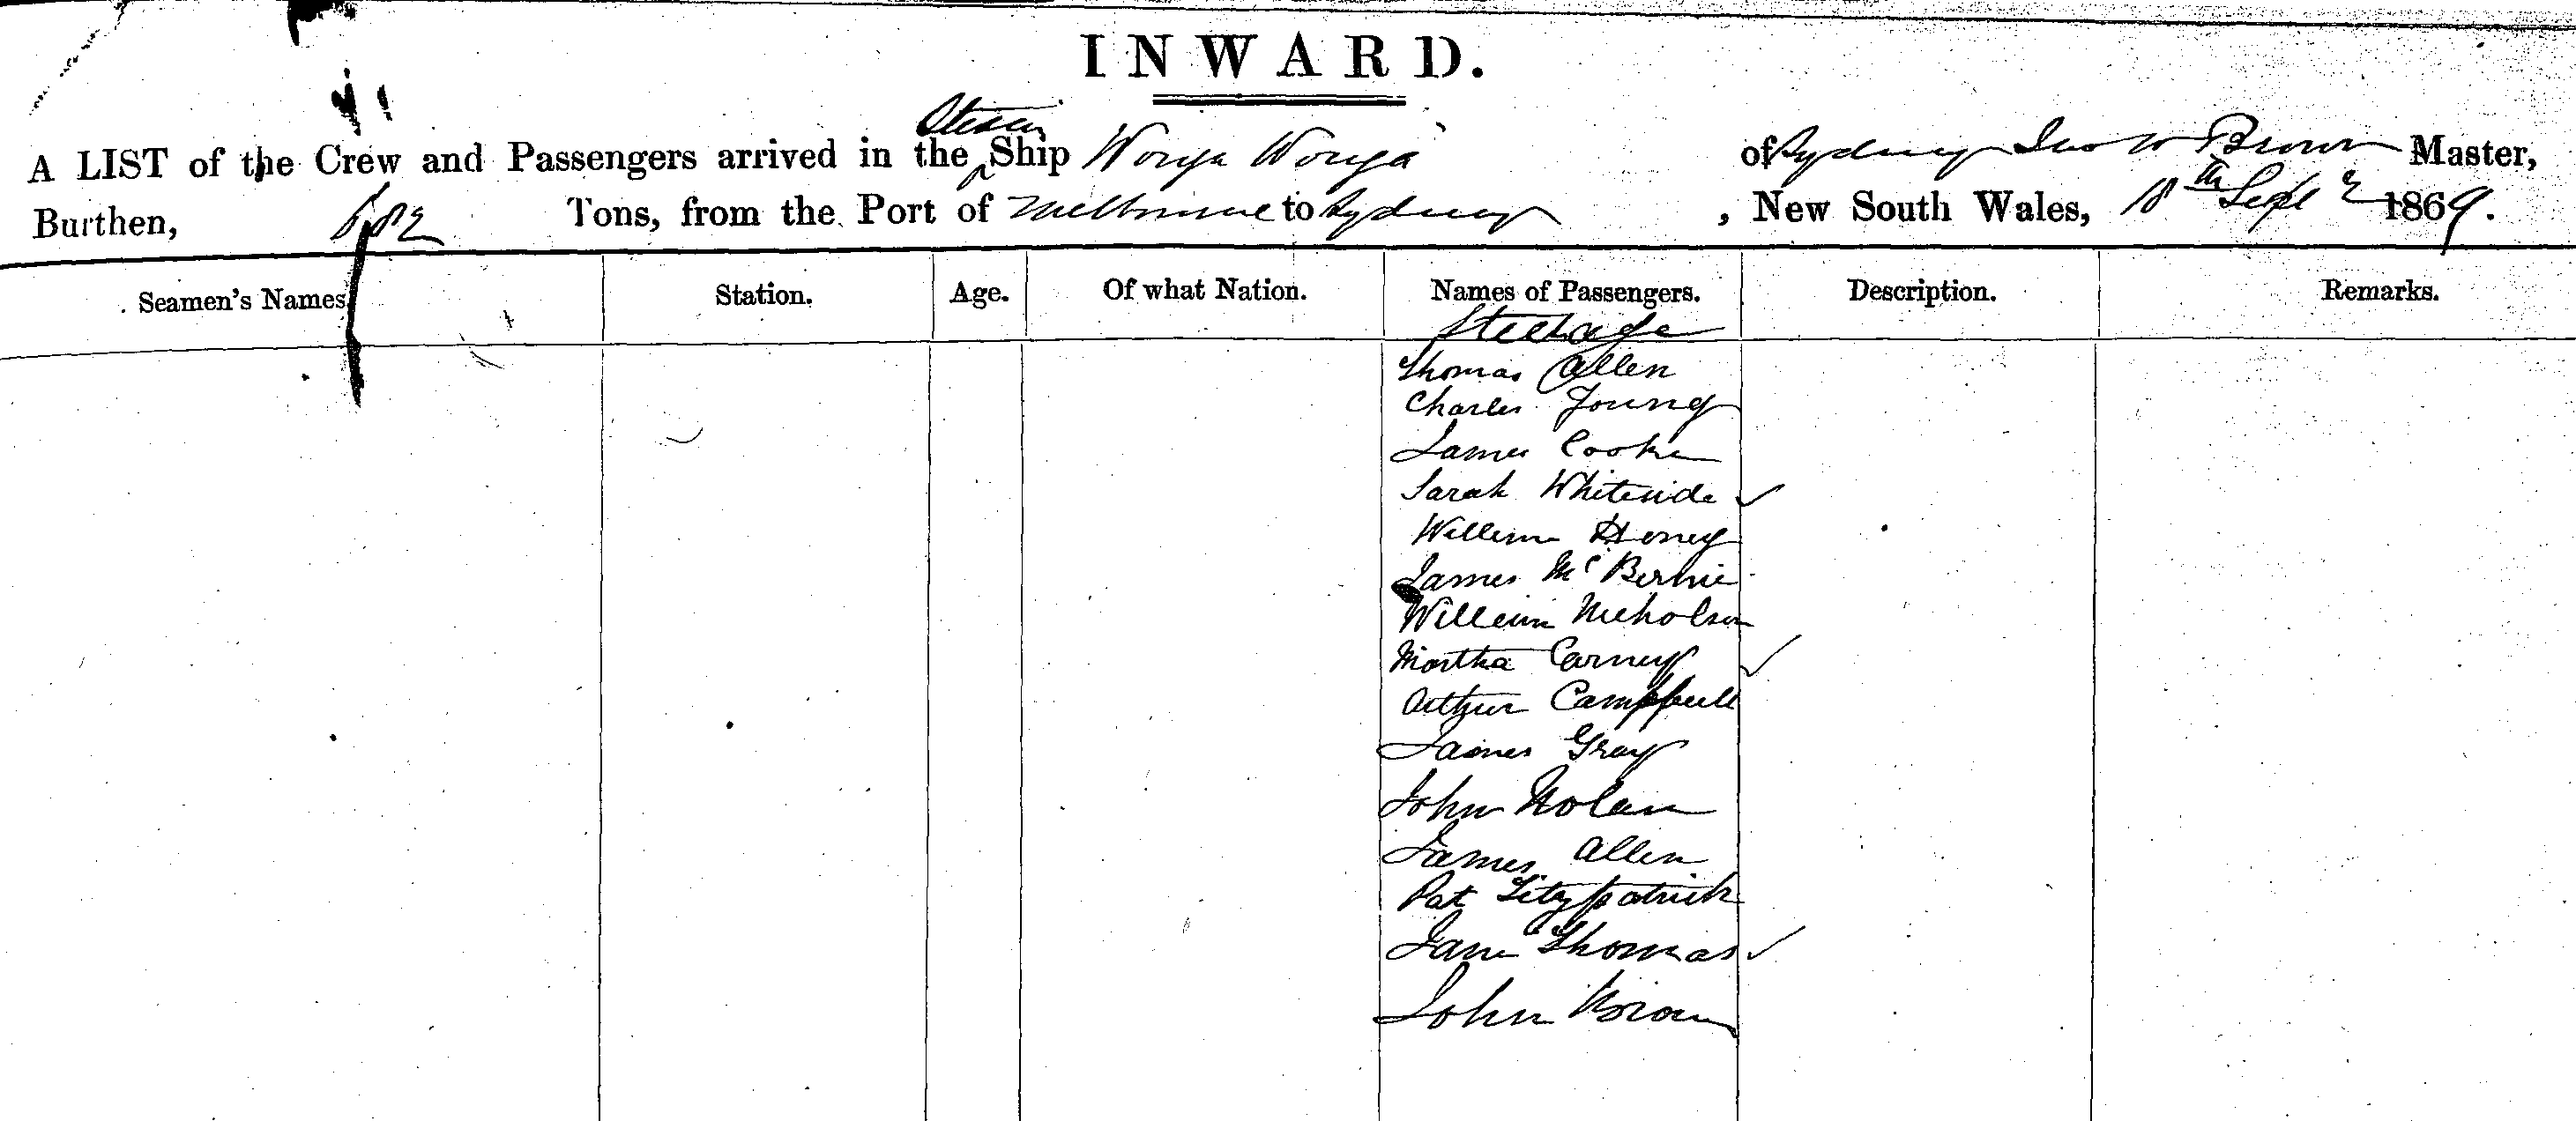 INWARD.
Steam
A LIST of the Crew and Passengers arrived in the Ship Wonga Wonga of Sydney Brown Master,
Burthen, 682 Tons, from the Port of Melbourne to Sydney, New South Wales, 18th Sept 1869.
Seamen's Names Station. Age. Of what Nation. Names of Passengers. Description. Remarks.
Steerage
Thomas Allen
Charles Young
James Cooke
Sarah Whiteside
William Honey
James McBirnie
William Nicholson
Martha Carney
Arthur Campbell
James Gray
John Nolan
James Allen
Pat Fitzpatrick
Jane Thomas
John Brown